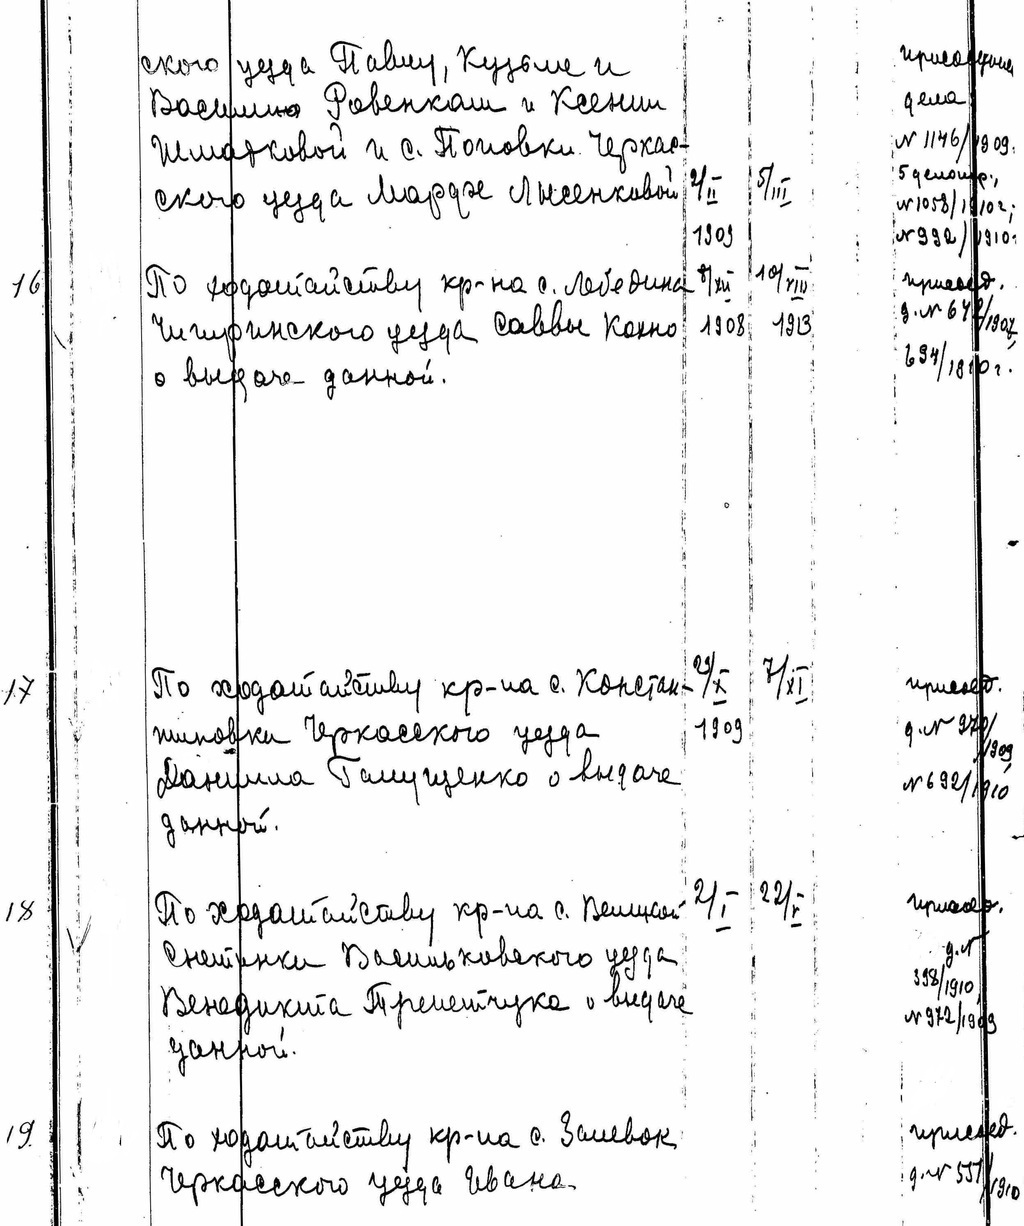 ского уезда Павлу, Кузьме и
Василию Ровенкам и Ксении
Шматковой и с. Поповки Черкас-
ского уезда Марфе Лысенковой 2/II 5/III
1909
присоединены
дела
№ 1146/1909.
5 делопр.,
№ 1058/1910 г.,
№ 992/1910.
16 По ходатайству кр-на с. Лебедина 8/XII 10/VIII
Чигиринского уезда Саввы Кохно 1908 1913
о выдаче данной.
присоед.
д. № 642/1907,
694/1810 г.
17 По ходатайству кр-на с. Констан- 29/X 7/XI
тиновки Черкасского уезда 1909
Даниила Галущенко о выдаче
данной.
присоед.
д. № 970/1909,
№ 692/1910
18 По ходатайству кр-на с. Великой 2/I 22/V
Снетинки Васильковского уезда
Венедикта Трепетчука о выдаче
данной.
присоед.
д. №
398/1910,
№ 972/1909
19. По ходатайству кр-на с. Залевок
Черкасского уезда Ивана
присоед.
д. № 551/1910